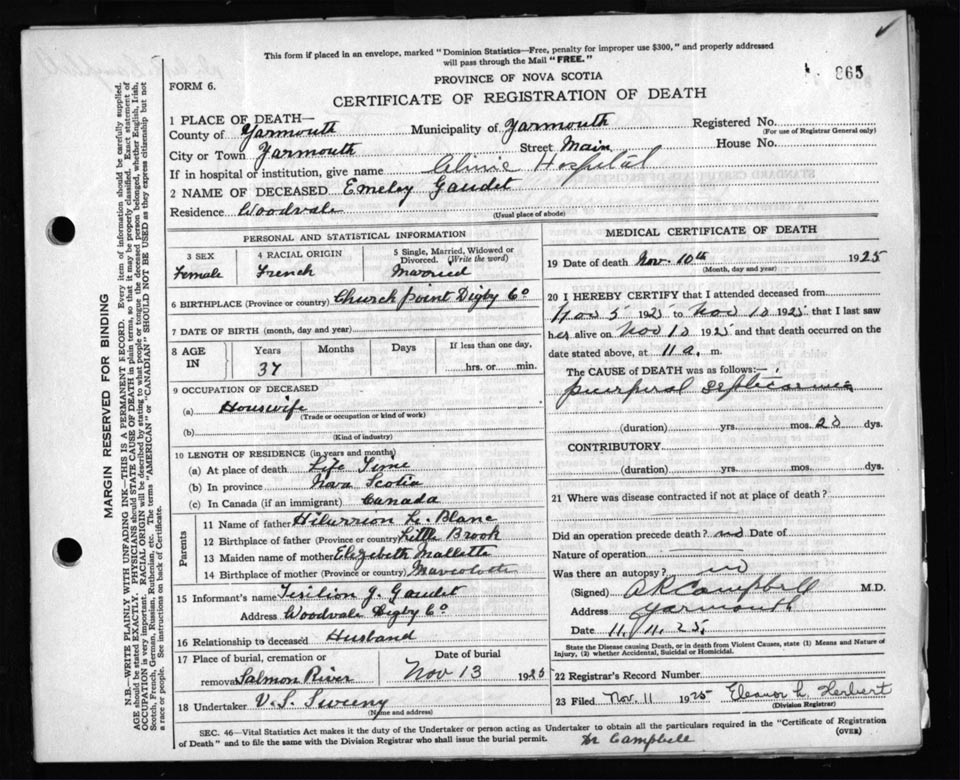 This form if placed in an envelope, marked "Dominion Statistics—Free, penalty for improper use $300," and properly addressed
will pass through the Mail "FREE."
865
PROVINCE OF NOVA SCOTIA
FORM 6.
CERTIFICATE OF REGISTRATION OF DEATH
1 PLACE OF DEATH—
County of Yarmouth Municipality of Yarmouth Registered No.
(For use of Registrar General only)
City or Town Yarmouth Street Main House No.
If in hospital or institution, give name Clinic Hospital
2 NAME OF DECEASED Emeley Gaudet
Residence Woodvale
(Usual place of abode)
PERSONAL AND STATISTICAL INFORMATION
3 SEX 4 RACIAL ORIGIN 5 Single, Married, Widowed or
Divorced. (Write the word)
Female French Married
6 BIRTHPLACE (Province or country) Church point Digby Co
7 DATE OF BIRTH (month, day and year)
8 AGE IN Years Months Days If less than one day,
37 hrs. or min.
9 OCCUPATION OF DECEASED
(a) Houswife
(Trade or occupation or kind of work)
(b)
(Kind of industry)
10 LENGTH OF RESIDENCE (in years and months)
(a) At place of death Life Time
(b) In province Nova Scotia
(c) In Canada (if an immigrant) Canada
Parents
11 Name of father Le Blanc
12 Birthplace of father (Province or country) Little Brook
13 Maiden name of mother Elizebeth
14 Birthplace of mother (Province or country)
15 Informant's name J. Gaudet
Address Woodvale Digby Co
16 Relationship to deceased Husband
17 Place of burial, cremation or Date of burial
removal Salmon River Nov 13 1925
18 Undertaker V. S. Sweeny
(Name and address)
MEDICAL CERTIFICATE OF DEATH
19 Date of death Nov. 10th 1925
(Month, day and year)
20 I HEREBY CERTIFY that I attended deceased from
Nov 5 1925 to Nov 10 1925 that I last saw
her alive on Nov 10 1925 and that death occurred on
date stated above, at 11 a. m.
The CAUSE OF DEATH was as follows:—
puerpural septicaemia
(duration) yrs. mos. 20 dys.
CONTRIBUTORY
(duration) yrs. mos. dys.
21 Where was disease contracted if not at place of death?
Did an operation precede death? no Date of
Nature of operation
Was there an autopsy? no
(Signed) A R Campbell M.D.
Address Yarmouth
Date 11.11.25
State the Disease causing Death, or in death from Violent Causes, state (1) Means and Nature of
Injury, (2) whether Accidental, Suicidal or Homicidal.
22 Registrar's Record Number
23 Filed Nov. 11 1925 Eleanor L. Herbert
(Division Registrar)
SEC. 46—Vital Statistics Act makes it the duty of the Undertaker or person acting as Undertaker to obtain all the particulars required in the "Certificate of Registration
of Death" and to file the same with the Division Registrar who shall issue the burial permit.
(OVER)
Dr Campbell
MARGIN RESERVED FOR BINDING
N.B.—WRITE PLAINLY WITH UNFADING INK—THIS IS A PERMANENT RECORD. Every item of information should be carefully supplied.
AGE should be stated EXACTLY. PHYSICIANS should STATE CAUSE OF DEATH in plain terms, so that it may be properly classified. Exact statement of
OCCUPATION is very important. RACIAL ORIGIN will be described by stating to what people or tongue the deceased person belonged, whether English, Irish,
Scotch, French, German, Russian, Ruthenian, etc. The terms "AMERICAN" or "CANADIAN" SHOULD NOT BE USED as they express citizenship but not
a race or people. See instructions on back of Certificate.